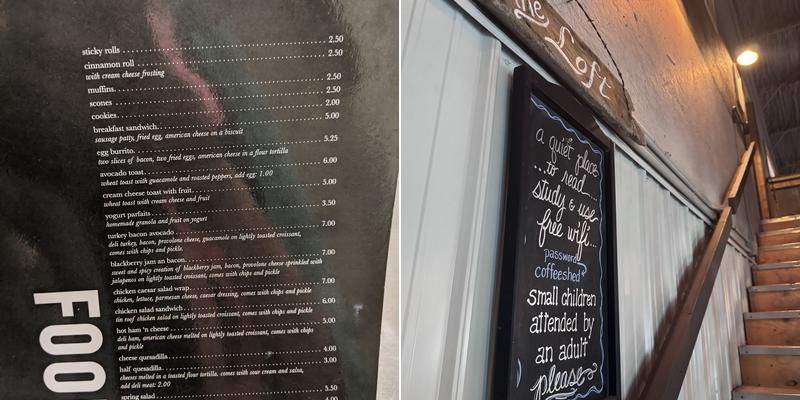 sticky rolls 2.50
cinnamon roll 2.50
with cream cheese frosting
muffins 2.50
scones 2.50
cookies 2.00
breakfast sandwich 5.00
sausage patty, fried egg, american cheese on a biscuit
egg burrito 5.25
two slices of bacon, two fried eggs, american cheese in a flour tortilla
avocado toast 6.00
wheat toast with guacamole and roasted peppers, add egg: 1.00
cream cheese toast with fruit 5.00
wheat toast with cream cheese and fruit
yogurt parfaits 3.50
homemade granola and fruit on yogurt
turkey bacon avocado 7.00
deli turkey, bacon, provolone cheese, guacamole on lightly toasted croissant,
comes with chips and pickle.
blackberry jam an bacon 7.00
sweet and spicy creation of blackberry jam, bacon, provolone cheese sprinkled with
jalapenos on lightly toasted croissant, comes with chips and pickle
chicken caesar salad wrap 7.00
chicken, lettuce, parmesan cheese, caesar dressing, comes with chips and pickle
chicken salad sandwich 6.00
tin roof chicken salad on lightly toasted croissant, comes with chips and pickle
hot ham 'n cheese 5.00
deli ham, american cheese melted on lightly toasted croissant, comes with chips
and pickle
cheese quesadilla 4.00
half quesadilla 3.00
cheeses melted in a toasted flour tortilla, comes with sour cream and salsa,
add deli meat: 2.00
spring salad 5.50
FOO
The Loft
a quiet place
...to read...
study & use
free wifi...
password
coffeeshed
small children
attended by
an adult
please